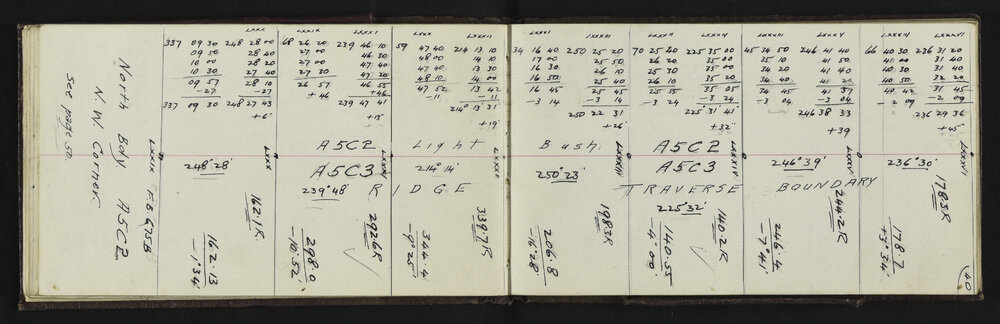 LXXX LXXIX LXXXI LXXX LXXXII
337 09 30 248 28 00 68 26 20 239 46 10 59 47 40 214 13 10
09 50 28 40 27 00 46 30 48 00 14 10
10 00 28 20 27 00 47 40 47 40 13 30
10 30 27 40 27 30 47 20 48 10 14 00
09 57 28 10 26 57 46 55 47 52 13 42
-27 -27 +46 +46 -11 -11
337 09 30 248 27 43 239 47 41 214° 13' 31"
+6" +15" +19"
A5C2 Light
248° 28' A5C3 214° 14'
239° 48' RIDGE
North Body A5C2
N.W. Corner.
See page 50.
LXXIX F.B. 675B
LXXX
162.1R
162.13
-1° 34'
298.0
-10° 52'
292.6R
LXXXII
339.7R
344.4
-9° 25'
34 16 40 250 25 20 70 25 40 225 35 00 45 34 50 246 41 40 66 40 30 236 31 20
17 00 25 50 26 20 35 00 35 10 41 50 41 00 31 40
16 30 26 10 25 30 35 00 34 20 41 40 40 30 31 40
16 50 25 40 26 10 35 20 34 40 41 20 40 50 32 20
16 45 25 45 25 55 35 05 34 45 41 37 40 42 31 45
-3 14 -3 14 -3 24 -3 24 -3 04 -3 04 -2 09 -2 09
250 22 31 225° 31' 41" 246 38 33 236 29 36
+26" +32" +39 +45"
Bush A5C2
250° 23' A5C3 246° 39' 236° 30'
TRAVERSE BOUNDARY
225° 32'
198.3R
206.8
-16° 28'
LXXXIV
140.2R
140.55
-4° 00'
244.2R
246.4
-7° 41'
LXXXVI
178.3R
178.7
+3° 34'
40